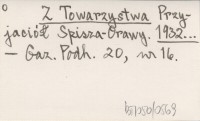 Z Towarzystwa Przy-
jaciół Spisza-Orawy. 1932...
— Gaz. Podh. 20, nr 16.